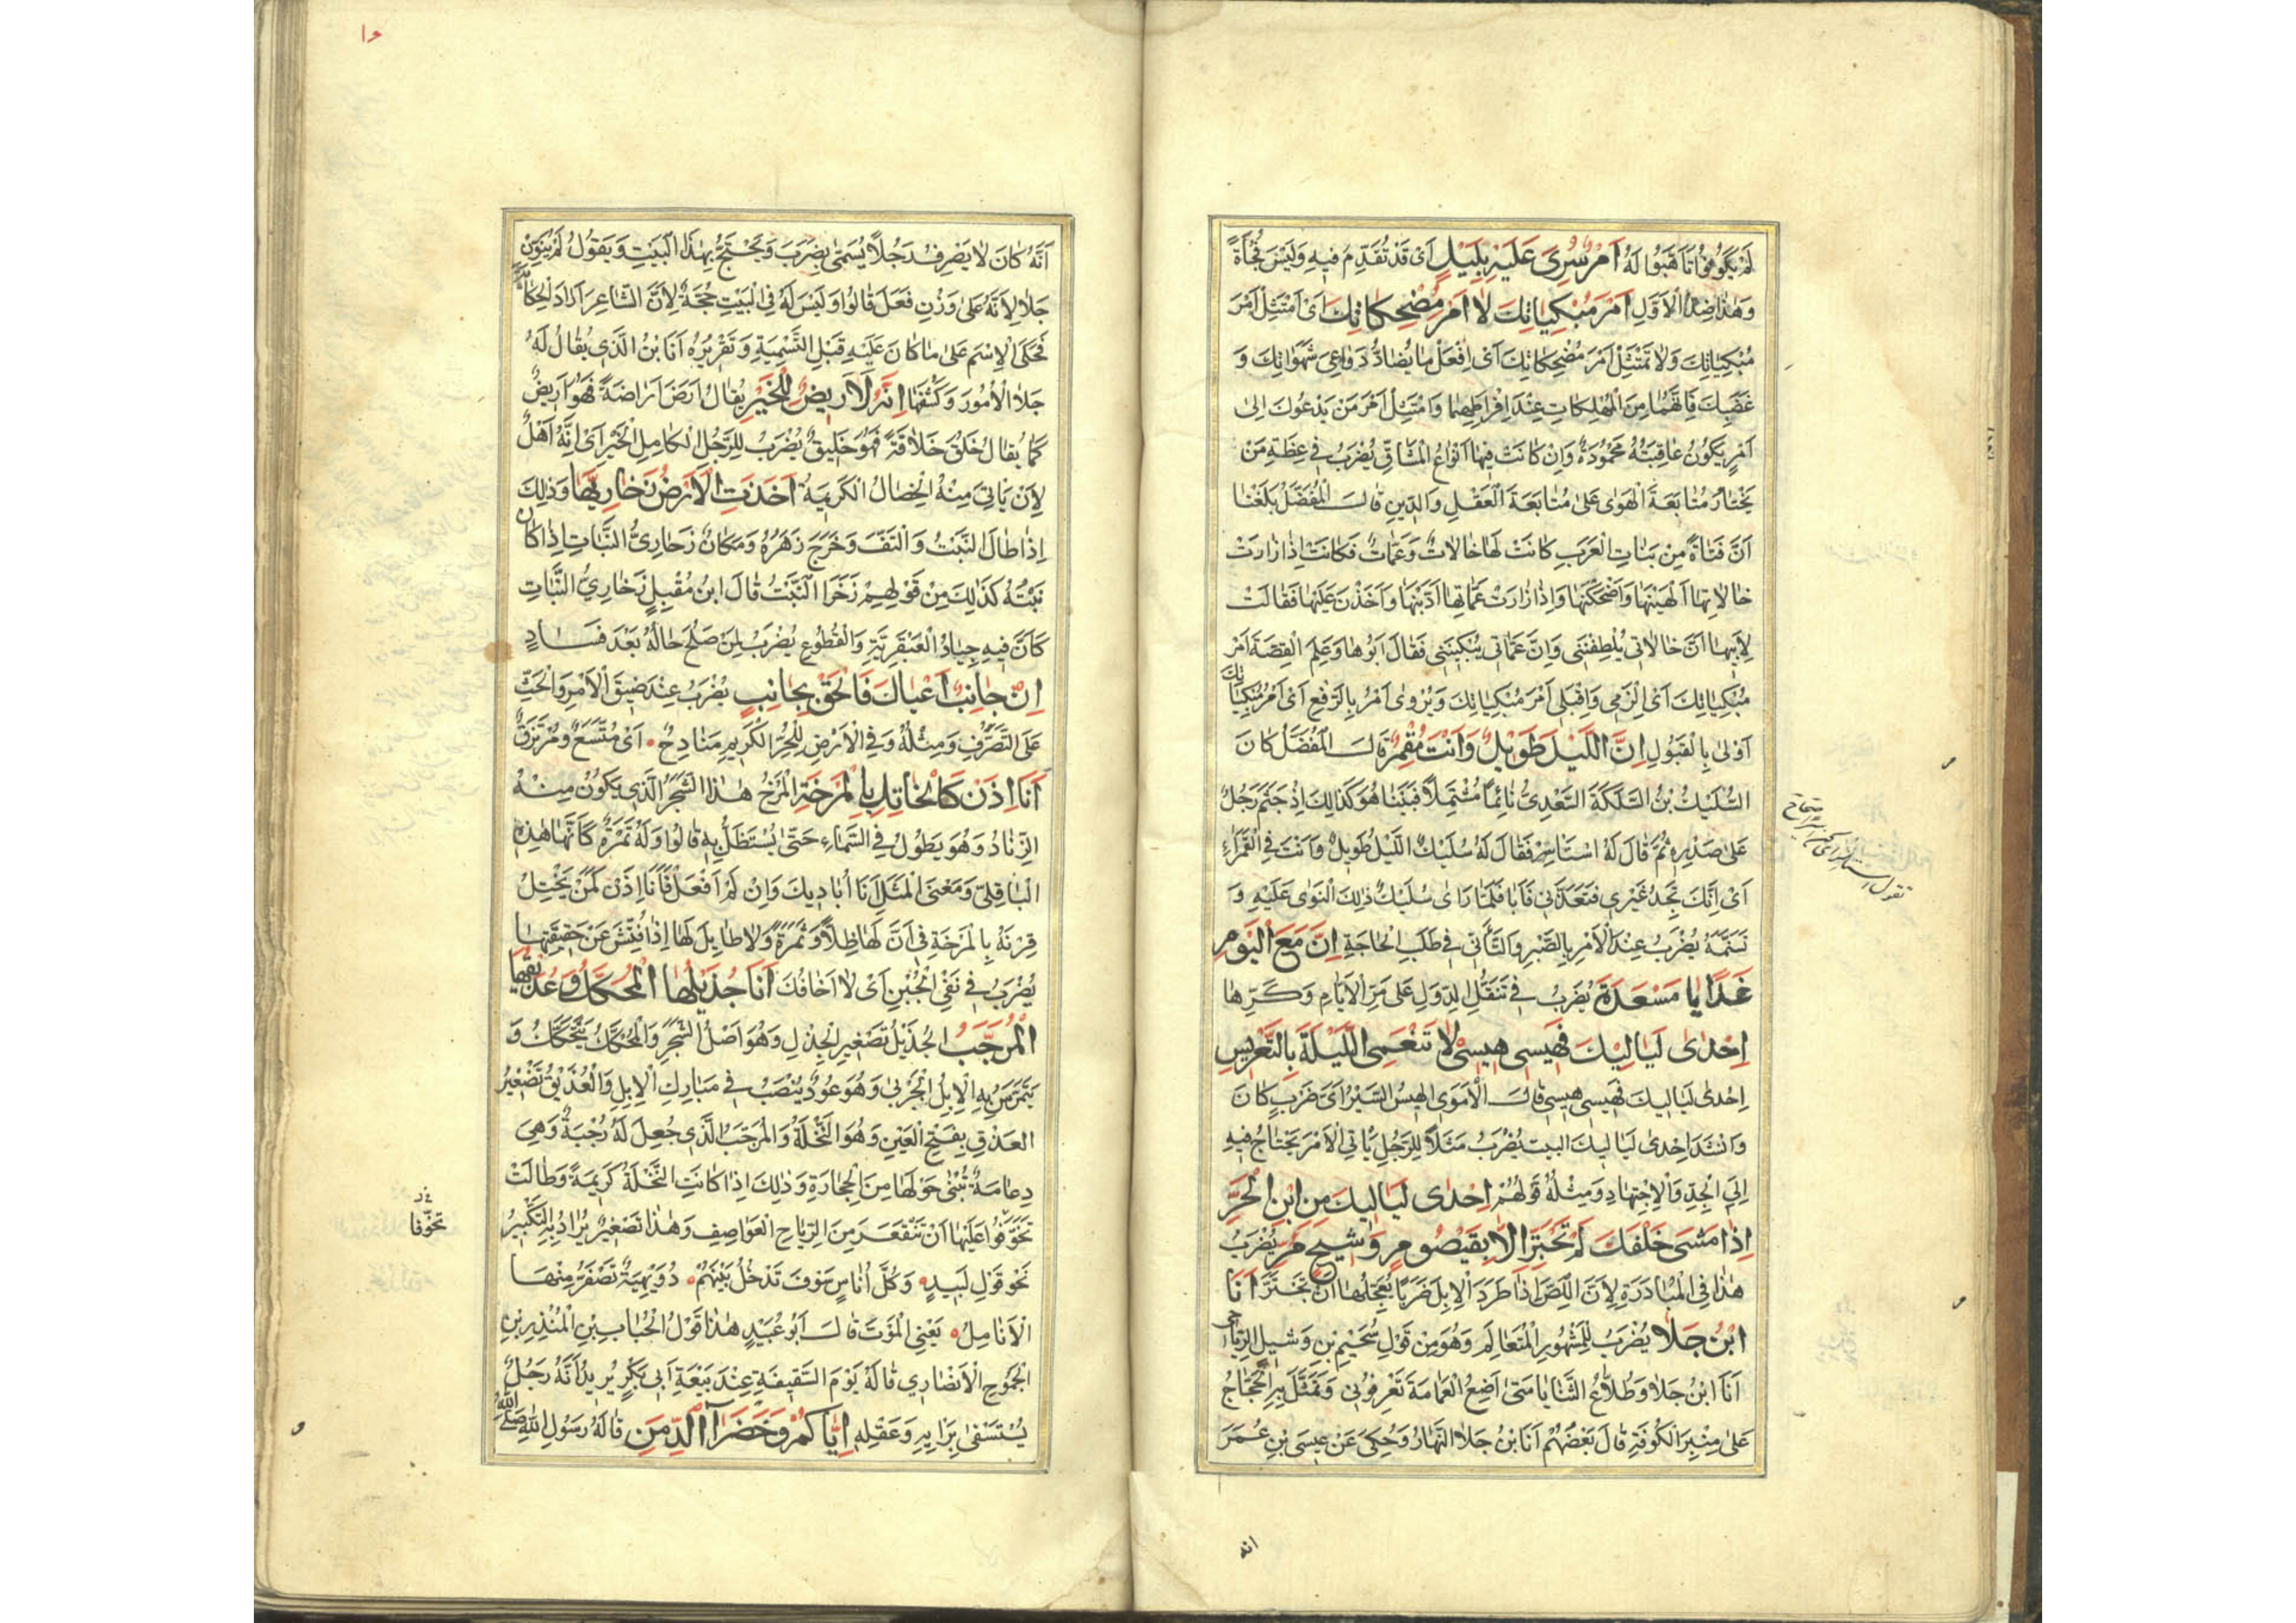 لَمْ يَكُونُوا تَأَهَّبُوا لَهُ اَمْرٌ سُرِىَ عَلَيْهِ بِلَيْلٍ اَىْ قَدْ تُقُدِّمَ فِيهِ وَلَيْسَ فُجْأَةً
وَهٰذَا ضِدُّ الْاَوَّلِ اَمْرَ مُبْكِيَاتِكَ لَا اَمْرَ مُضْحِكَاتِكَ اَىْ اِمْتَثِلْ اَمْرَ
مُبْكِيَاتِكَ وَلَا تَمْتَثِلْ اَمْرَ مُضْحِكَاتِكَ اَىْ اِفْعَلْ مَا يُضَادُّ دَوَاعِىَ شَهَوَاتِكَ وَ
غَضَبِكَ فَاِنَّهُمَا مِنَ الْمُهْلِكَاتِ عِنْدَ اِفْرَاطِهِمَا وَامْتَثِلْ اَمْرَ مَنْ يَدْعُوكَ اِلىٰ
اَمْرٍ يَكُونُ عَاقِبَتُهُ مَحْمُودَةً وَاِنْ كَانَتْ فِيهَا اَنْوَاعُ الْمَشَاقِّ يُضْرَبُ فِى عِظَةِ مَنْ
يَخْتَارُ مُتَابَعَةَ الْهَوٰى عَلىٰ مُتَابَعَةِ الْعَقْلِ وَالدِّينِ قَالَ الْمُفَضَّلُ بَلَغَنَا
اَنَّ فَتَاةً مِنْ بَنَاتِ الْعَرَبِ كَانَتْ لَهَا خَالَاتٌ وَعَمَّاتٌ فَكَانَتْ اِذَا زَارَتْ
خَالَاتِهَا اَلْهَيْنَهَا وَاَضْحَكْنَهَا وَاِذَا زَارَتْ عَمَّاتِهَا اَدَّبْنَهَا وَاَخَذْنَ عَلَيْهَا فَقَالَتْ
لِاَبِيهَا اَنَّ خَالَاتِى يُلْطِفْنَنِى وَاِنَّ عَمَّاتِى يُبْكِينَنِى فَقَالَ اَبُوهَا وَعَلِمَ الْقِصَّةَ اَمْرَ
مُبْكِيَاتِكَ اَىْ اِلْزَمِى وَاقْبَلِى اَمْرَ مُبْكِيَاتِكَ وَيُرْوٰى اَمْرُ بِالرَّفْعِ اَىْ اَمْرُ مُبْكِيَاتِكَ
اَوْلىٰ بِالْقَبُولِ اِنَّ اللَّيْلَ طَوِيلٌ وَاَنْتَ مُقْمِرٌ قَالَ الْمُفَضَّلُ كَانَ
السُّلَيْكُ بْنُ السُّلَكَةِ السَّعْدِىُّ نَائِمًا مُشْتَمِلًا فَبَيْنَا هُوَ كَذٰلِكَ اِذْ جَثَمَ رَجُلٌ
عَلىٰ صَدْرِهِ ثُمَّ قَالَ لَهُ اسْتَأْسِرْ فَقَالَ لَهُ سُلَيْكٌ اللَّيْلُ طَوِيلٌ وَاَنْتَ فِى الْقَمْرَاءِ
اَىْ اِنَّكَ تَجِدُ غَيْرِى فَتَعَدَّنِى فَاَبٰا فَلَمَّا رَاٰى سُلَيْكٌ ذٰلِكَ الْتَوٰى عَلَيْهِ وَ
تَسَنَّمَهُ يُضْرَبُ عِنْدَ الْاَمْرِ بِالصَّبْرِ وَالتَّأَنِّى فِى طَلَبِ الْحَاجَةِ اِنَّ مَعَ الْيَوْمِ
غَدًا يَا مَسْعَدَةُ يُضْرَبُ فِى تَنَقُّلِ الدُّوَلِ عَلىٰ مَرِّ الْاَيَّامِ وَكَرِّهَا
اِحْدٰى لَيَالِيكَ فَهِيسِى هِيسِى لَا تَنْعَمِى اللَّيْلَةَ بِالتَّعْرِيسِ
اِحْدٰى لَيَالِيكَ فَهِيسِى هِيسِى قَالَ الْاُمَوِى الْهَيْسُ السَّيْرُ اَىَّ ضَرْبٍ كَانَ
وَانْشَدَ اِحْدٰى لَيَالِيكَ البيت يُضْرَبُ مَثَلًا لِلرَّجُلِ يَأْتِى الْاَمْرَ يَحْتَاجُ فِيهِ
اِلىَ الْجِدِّ وَالْاِجْتِهَادِ وَمِثْلُهُ قَوْلُهُمْ اِحْدٰى لَيَالِيكَ مِن ابْنِ الْحُرِّ
اِذَا مَشَى خَلْفَكَ لَمْ تَجْتَرِّ اِلَّا بِقَيْصُومٍ وَشِيحٍ مُرِّ يُضْرَبُ
هٰذَا فِى الْمُبَادَرَةِ لِاَنَّ اللِّصَّ اِذَا طَرَدَ الْاِبِلَ ضَرَبَهَا يُعْجِلُهَا اَنْ تَجْتَرَّ اَنَا
ابْنُ جَلَا يُضْرَبُ لِلْمَشْهُورِ الْمُتَعَالِمِ وَهُوَ مِنْ قَوْلِ سُحَيْمِ بْنِ وَثِيلٍ الرِّيَاحِى
اَنَا ابْنُ جَلَا وَطَلَّاعُ الثَّنَايَا مَتىٰ اَضَعُ الْعَمَامَةَ تَعْرِفُونِى وَتَمَثَّلَ بِهِ الْحَجَّاجُ
عَلىٰ مِنْبَرِ الْكُوفَةِ قَالَ بَعْضُهُمْ اَنَا بْنُ جَلَا النَّهَارُ وَحُكِىَ عَنْ عِيسَى بْنِ عُمَرَ
انه
اَنَّهُ كَانَ لَا يَصْرِفُ رَجُلًا يُسَمّٰى بِضَرَبَ وَيَحْتَجُّ بِهٰذَا الْبَيْتِ وَيَقُولُ لَمْ يُنَوِّنْ
جَلَا لِاَنَّهُ عَلىٰ وَزْنِ فَعَلَ قَالُوا وَلَيْسَ لَهُ فِى الْبَيْتِ حُجَّةٌ لِاَنَّ الشَّاعِرَ اَرَادَ الْحِكَايَةَ
فَحَكَى الْاِسْمَ عَلىٰ مَا كَانَ عَلَيْهِ قَبْلَ التَّسْمِيَةِ وَتَقْرِيرُهُ اَنَا بْنُ الَّذِى يُقَالُ لَهُ
جَلَا الْاُمُورَ وَكَشَفَهَا اِنَّهُ لَاَرِيضٌ لِلْخَيْرِ يُقَالُ اَرُضَ اَرَاضَةً فَهُوَ اَرِيضٌ
كَمَا يُقَالُ خَلُقَ خَلَاقَةً فَهُوَ خَلِيقٌ يُضْرَبُ لِلرَّجُلِ الْكَامِلِ الْخَيْرِ اَىْ اِنَّهُ اَهْلٌ
لِاَنْ يَاْتِىَ مِنْهُ الْخِصَالُ الْكَرِيمَةُ اَخَذَتِ الْاَرْضُ زَخَارِيَّهَا وَذٰلِكَ
اِذَا طَالَ النَّبْتُ وَالْتَفَّ وَخَرَجَ زَهَرُهُ وَمَكَانٌ زَخَارِىُّ النَّبَاتِ اِذَا كَانَ
نَبْتُهُ كَذٰلِكَ مِنْ قَوْلِهِمْ زَخَرَ النَّبْتُ قَالَ ابْنُ مُقْبِلٍ زَخَارِيُّ النَّبَاتِ
كَأَنَّ فِيهِ جِيَادُ الْعَبْقَرِيَّةِ وَالْقُطُوعِ يُضْرَبُ لِمَنْ صَلُحَ حَالُهُ بَعْدَ فَسَادٍ
اِنْ جَانِبٌ اَعْيَاكَ فَالْحَقْ بِجَانِبٍ يُضْرَبُ عِنْدَ ضِيقِ الْاَمْرِ وَالْحَثِّ
عَلَى التَّصَرُّفِ وَمِثْلُهُ وَفِى الْاَرْضِ لِلْحُرِّ الْكَرِيمِ مَنَادِحُ اَىْ مُتَّسَعٌ وَمُرْتَزَقٌ
اَنَا اِذَنْ كَالْخَاتِلِ بِالْمَرْخَةِ الْمَرْخُ هٰذَا الشَّجَرُ الَّذِى يَكُونُ مِنْهُ
الزِّنَادُ وَهُوَ يَطُولُ فِى السَّمَاءِ حَتّٰى يُسْتَظَلُّ بِهِ قَالُوا وَلَهُ ثَمَرَةٌ كَأَنَّهَا هٰذِهِ
الْبَاقِلّٰى وَمَعْنَى الْمَثَلِ اَنَا اُبَادِيكَ وَاِنْ لَمْ اَفْعَلْ فَاَنَا اِذَنْ كَمَنْ يَخْتِلُ
قِرْنَهُ بِالْمَرْخَةِ فِى اَنَّ لَهَا ظِلًّا وَثَمَرَةً وَلَا طَايِلَ لَهَا اِذَا فُتِّشَ عَنْ حَقِيقَتِهَا
يُضْرَبُ فِى نَفْىِ الْجُبْنِ اَىْ لَا اَخَافُكَ اَنَا جُذَيْلُهَا الْمُحَكَّكُ وَعُذَيْقُهَا
الْمُرَجَّبُ الْجُذَيْلُ تَصْغِيرُ الْجِذْلِ وَهُوَ اَصْلُ الشَّجَرِ وَالْمُحَكَّكُ يَتَحَكَّكُ وَ
يَتَمَرَّسُ بِهِ الْاِبِلُ الْجَرْبىٰ وَهُوَ عُودٌ يُنْصَبُ فِى مَبَارِكِ الْاِبِلِ وَالْعُذَيْقُ تَصْغِيرُ
العَذْقِ بِفَتْحِ الْعَيْنِ وَهُوَ النَّخْلَةُ وَالْمُرَجَّبُ الَّذِى جُعِلَ لَهُ رُجْبَةٌ وَهِىَ
دِعَامَةٌ تُبْنىٰ حَوْلَهَا مِنَ الْحِجَارَةِ وَذٰلِكَ اِذَا كَانَتِ النَّخْلَةُ كَرِيمَةً وَطَالَتْ
تَخَوَّفُوا عَلَيْهَا اَنْ تَنْقَعَرَ مِنَ الرِّيَاحِ الْعَوَاصِفِ وَهٰذَا تَصْغِيرٌ يُرَادُ بِهِ التَّكْبِيرُ
نَحْوُ قَوْلِ لَبِيدٍ وَكُلُّ اُنَاسٍ سَوْفَ تَدْخُلُ بَيْنَهُمْ دُوَيْهِيَةٌ تَصْفَرُّ مِنْهَا
الْاَنَامِلُ يَعْنِى الْمَوْتَ قَالَ اَبُو عُبَيْدٍ هٰذَا قَوْلُ الْحُبَابِ بْنِ الْمُنْذِرِ بْنِ
الْجَمُوحِ الْاَنْصَارِى قَالَهُ يَوْمَ السَّقِيفَةِ عِنْدَ بَيْعَةِ اَبِى بَكْرٍ يُرِيدُ اَنَّهُ رَجُلٌ
يُسْتَشْفىٰ بِرَايِهِ وَعَقْلِهِ اِيَّاكُمْ وَخَضْرَاءَ الدِّمَنِ قَالَهُ رَسُولُ اللهِ صَلَّى اللهُ
تخوّفا